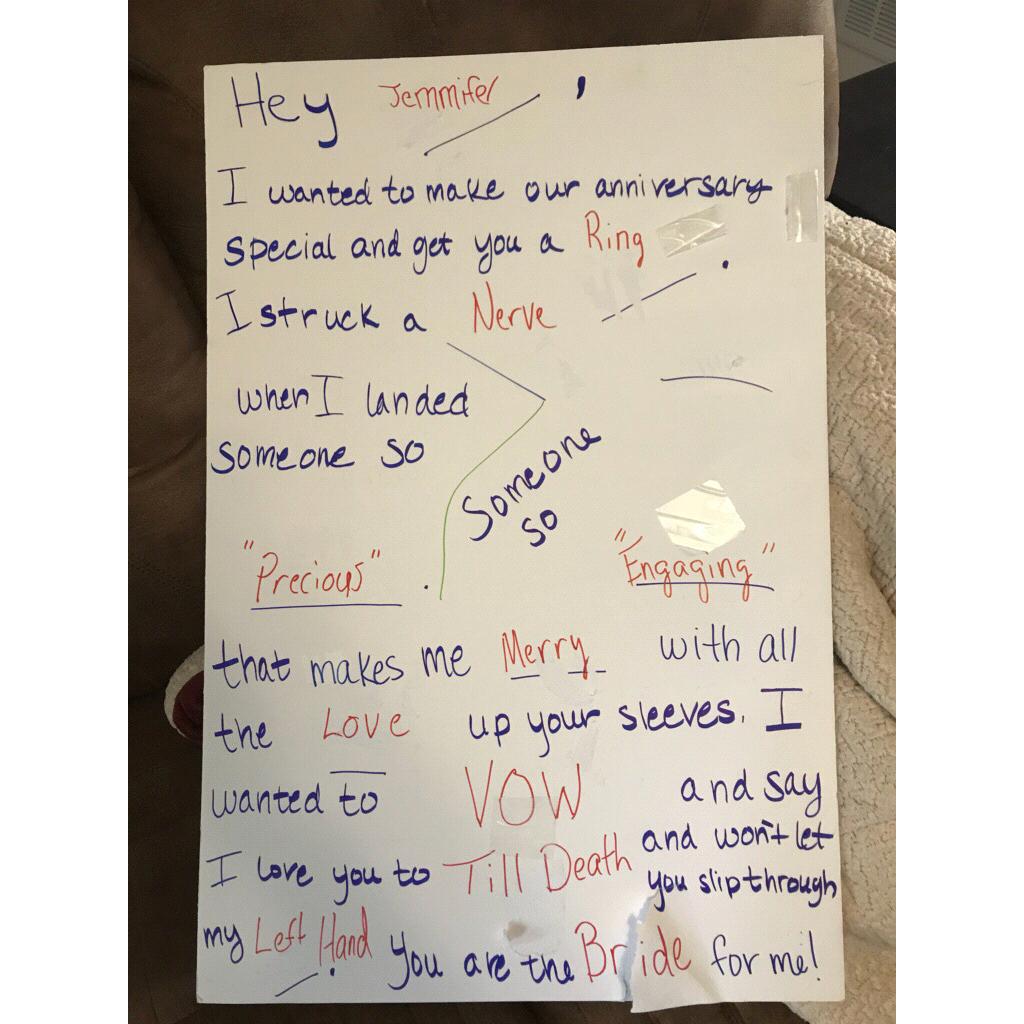 Hey Jemmifer ,
I wanted to make our anniversary
special and get you a Ring
I struck a Nerve .
when I landed
someone so
Someone
so
"Precious" .
"Engaging"
that makes me Merry with all
the Love up your sleeves. I
wanted to VOW and say
I love you to Till Death and won't let
you slip through
my Left Hand. You are the Bride for me!